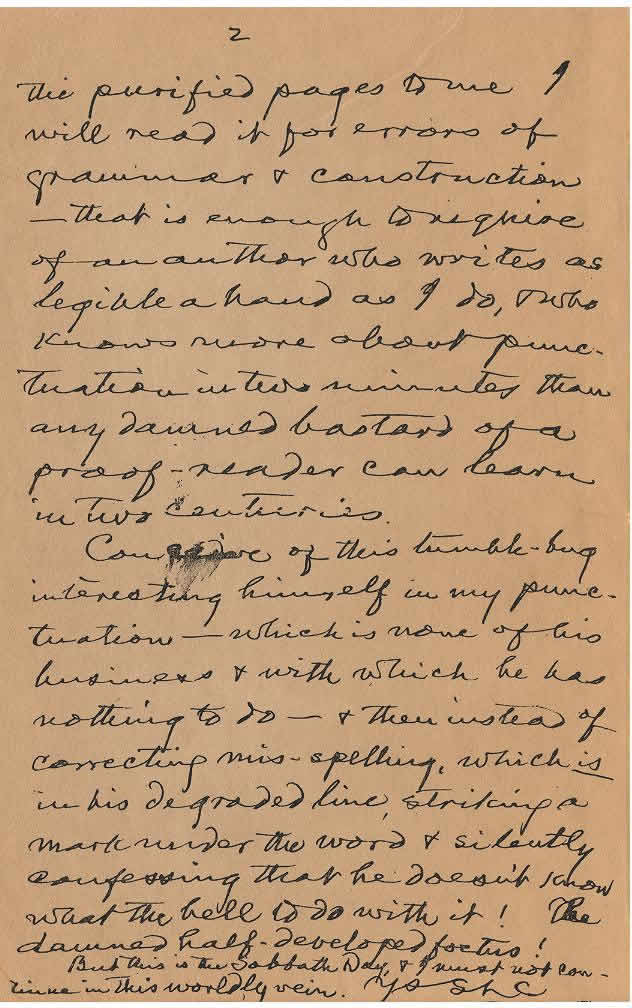 2
the purified pages to me I
will read it for errors of
grammar & construction
— that is enough to require
of an author who writes as
legible a hand as I do, & who
knows more about punc-
tuation in two minutes than
any damned bastard of a
proof-reader can learn
in two centuries.
Conceive of this tumble-bug
interesting himself in my punc-
tuation — which is none of his
business & with which he has
nothing to do — & then instead of
correcting mis-spelling, which is
in his degraded line, striking a
mark under the word & silently
confessing that he doesn't know
what the hell to do with it! The
damned half-developed foetus!
But this is the Sabbath Day, & I must not con-
tinue in this worldly vein. Ys SLC